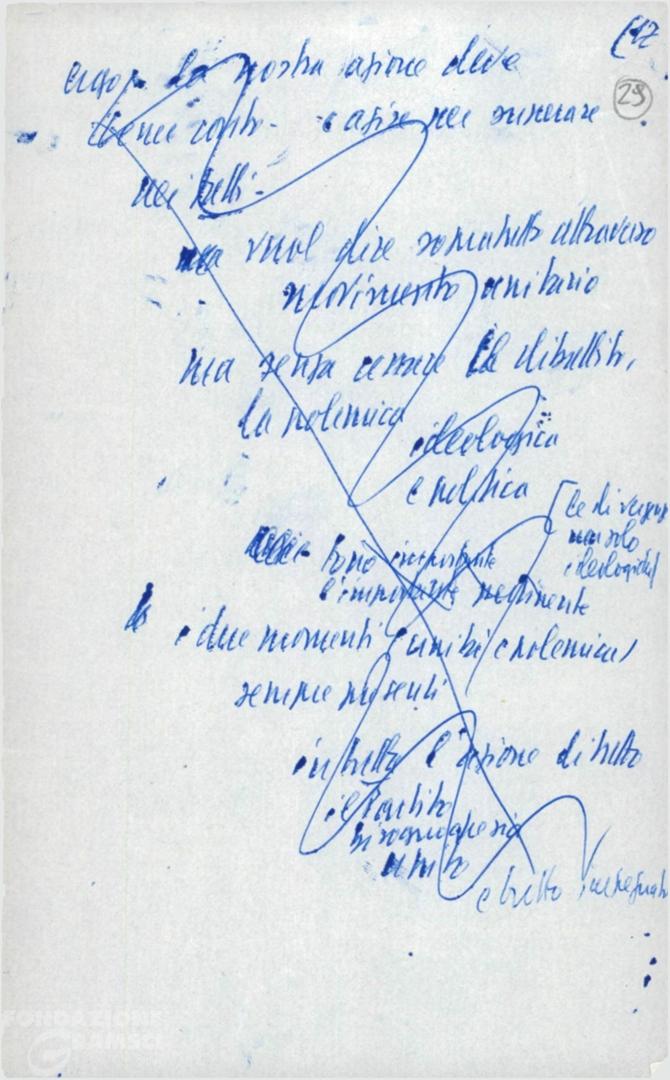 (12
29
la nostra azione deve
tener conto - e agire per superare
nei fatti -
ma vuol dire soprattutto attraverso
movimento unitario
ma senza cessare il dibattito,
la polemica
ideologica
e politica
[le diverg
non solo
ideologiche]
importante
l'importante
i due momenti (unità e polemica)
sempre presenti
in tutta l'azione di tutto
il Partito
unito
e tutto impegnato
FONDAZIONE
GRAMSCI